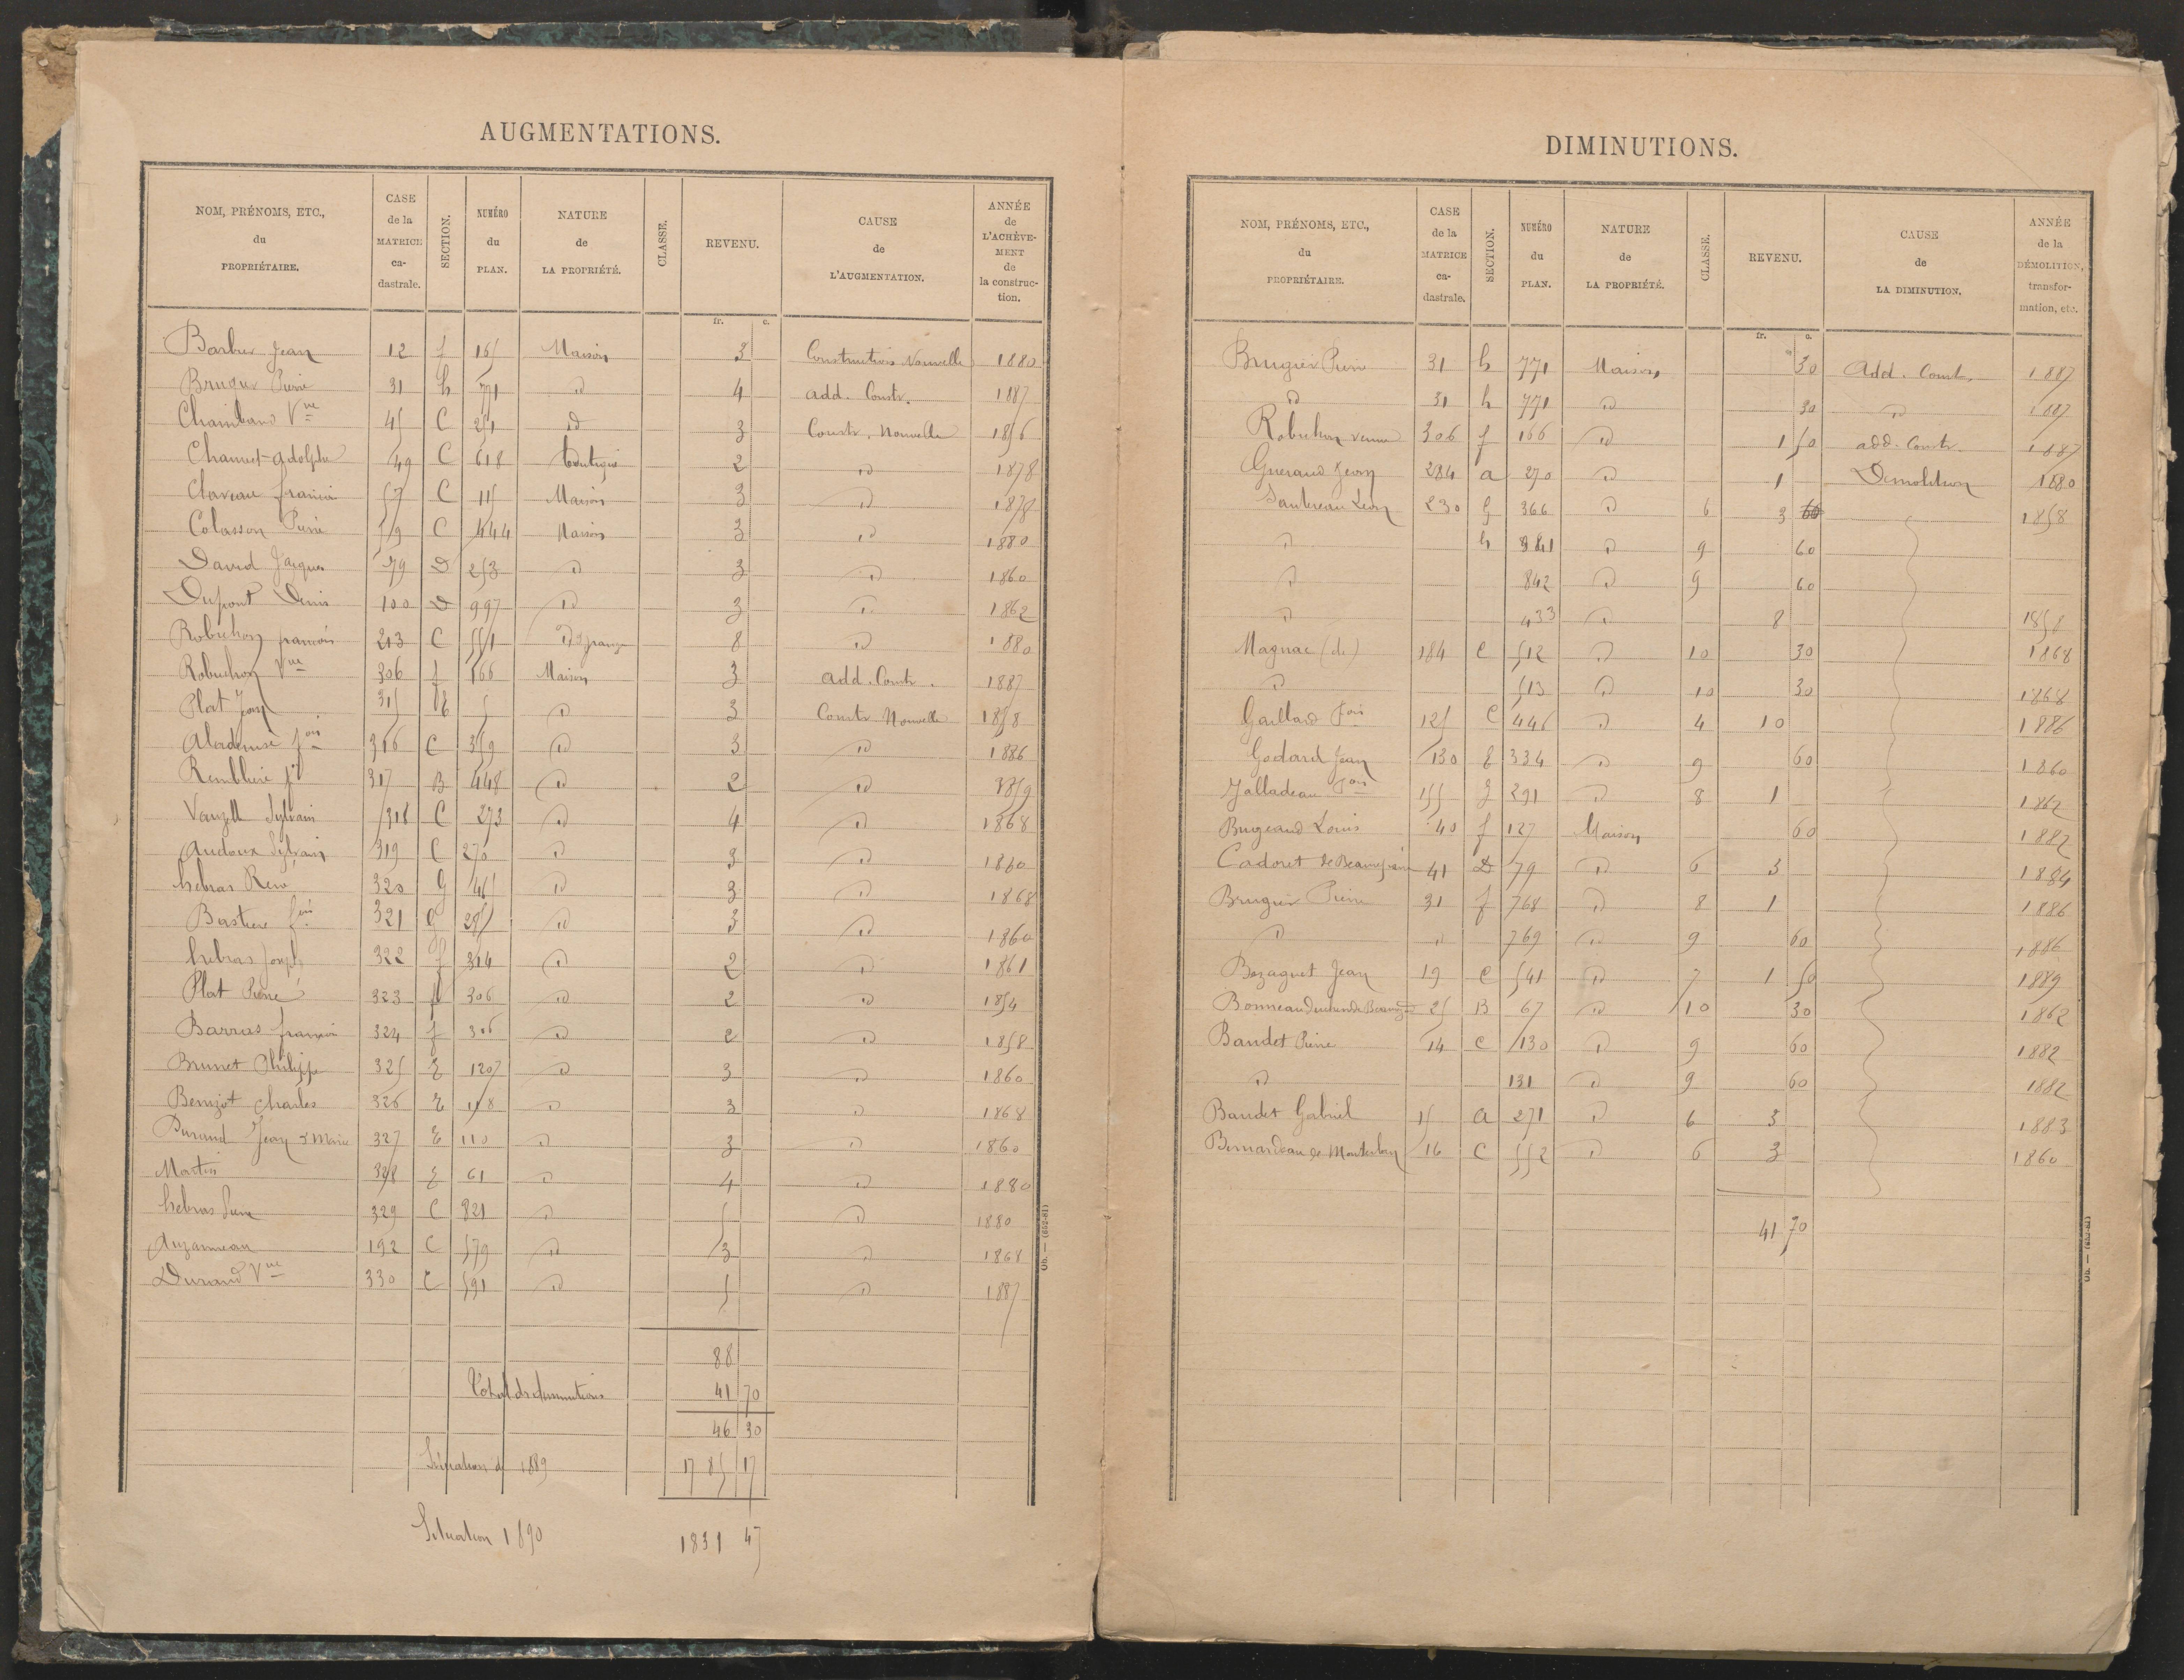 AUGMENTATIONS.
NOM, PRÉNOMS, ETC., du PROPRIÉTAIRE. CASE de la MATRICE ca- dastrale. SECTION. NUMÉRO du PLAN. NATURE de LA PROPRIÉTÉ. CLASSE. REVENU. CAUSE de L'AUGMENTATION. ANNÉE de L'ACHÈVE- MENT de la construc- tion.
fr. c.
Barbier Jean 12 f 165 Maison 3 Construction Nouvelle 1880
Brugier Pierre 31 h 771 id 4 add. Constr. 1887
Chambaud Vve 45 C 251 id 3 Constr. Nouvelle 1856
Chauvet Adolphe 49 C 618 boutique 2 id 1878
Claveau françois 57 C 115 Maison 3 id 1878
Colasson Pierre 59 C 444 Maison 3 id 1880
David Jacques 79 D 253 id 3 id 1860
Dupont Denis 100 D 997 id 3 id 1862
Robuchon françois 213 C 551 id & grange 8 id 1880
Robuchon Vve 306 f 166 Maison 3 add. Constr. 1887
Plat Jean 315 5 id 3 Constr Nouvelle 1858
316 C 359 id 3 id 1886
317 B 448 id 2 id 1859
Sylvain 318 C 273 id 4 id 1868
Audoux Sylvain 319 C 270 id 3 id 1860
hebras René 320 G 465 id 3 id 1868
Bastière fois 321 G id 3 id 1860
hebras Joseph 322 f 314 id 2 id 1861
Plat Pierre 323 306 id 2 id 1854
Barras françois 324 f 306 id 2 id 1858
Brunet Philippe 325 E 1207 id 3 id 1860
Charles 326 E id 3 id 1868
Durand Jean & Marie 327 E 110 id 3 id 1860
Martin 328 E 61 id 4 id 1880
hebras Pierre 329 C 821 id 5 id 1880
Auzanneau 192 C 579 id 3 id 1868
Durand Vve 330 C 591 id 5 id 1887
88
Total des diminutions 41 70
46 30
Situation de 1889 1785 17
Situation 1890 1831 47
Ob. — (652-81)
DIMINUTIONS.
NOM, PRÉNOMS, ETC., du PROPRIÉTAIRE. CASE de la MATRICE ca- dastrale. SECTION. NUMÉRO du PLAN. NATURE de LA PROPRIÉTÉ. CLASSE. REVENU. CAUSE de LA DIMINUTION. ANNÉE de la DÉMOLITION, transfor- mation, etc.
fr. c.
Brugier Pierre 31 h 771 Maison 30 Add. Constr. 1887
id 31 h 771 id 30 id 1887
Robuchon veuve 306 f 166 id 1 50 add. Constr. 1887
Gueraud Jean 284 a 270 id 1 Demolition 1880
Sautereau Léon 230 G 366 id 6 3 1858
id h 841 id 9 60
id 842 id 9 60
id 433 id 8 1858
Magnac (de) 184 C 512 id 10 30 1868
id 513 id 10 30 1868
Gaillard fois 125 C 446 id 4 10 1886
Godard Jean 130 E 334 id 9 60 1860
Jalladeau fois 155 G 291 id 8 1 1862
Bugeaud Louis 40 f 127 Maison 60 1882
Cadoret de Beaumont 41 D 79 id 6 3 1884
Brugier Pierre 31 f 768 id 8 1 1886
id id 769 id 9 60 1886
Bezaguet Jean 19 C 541 id 7 1 50 1889
25 B 67 id 10 30 1862
Baudet Pierre 14 C 130 id 9 60 1882
id 131 id 9 60 1882
Baudet Gabriel 15 a 271 id 6 3 1883
Bernardeau de Monterban 16 C 552 id 6 3 1860
41 70
Ob. — (652-81)